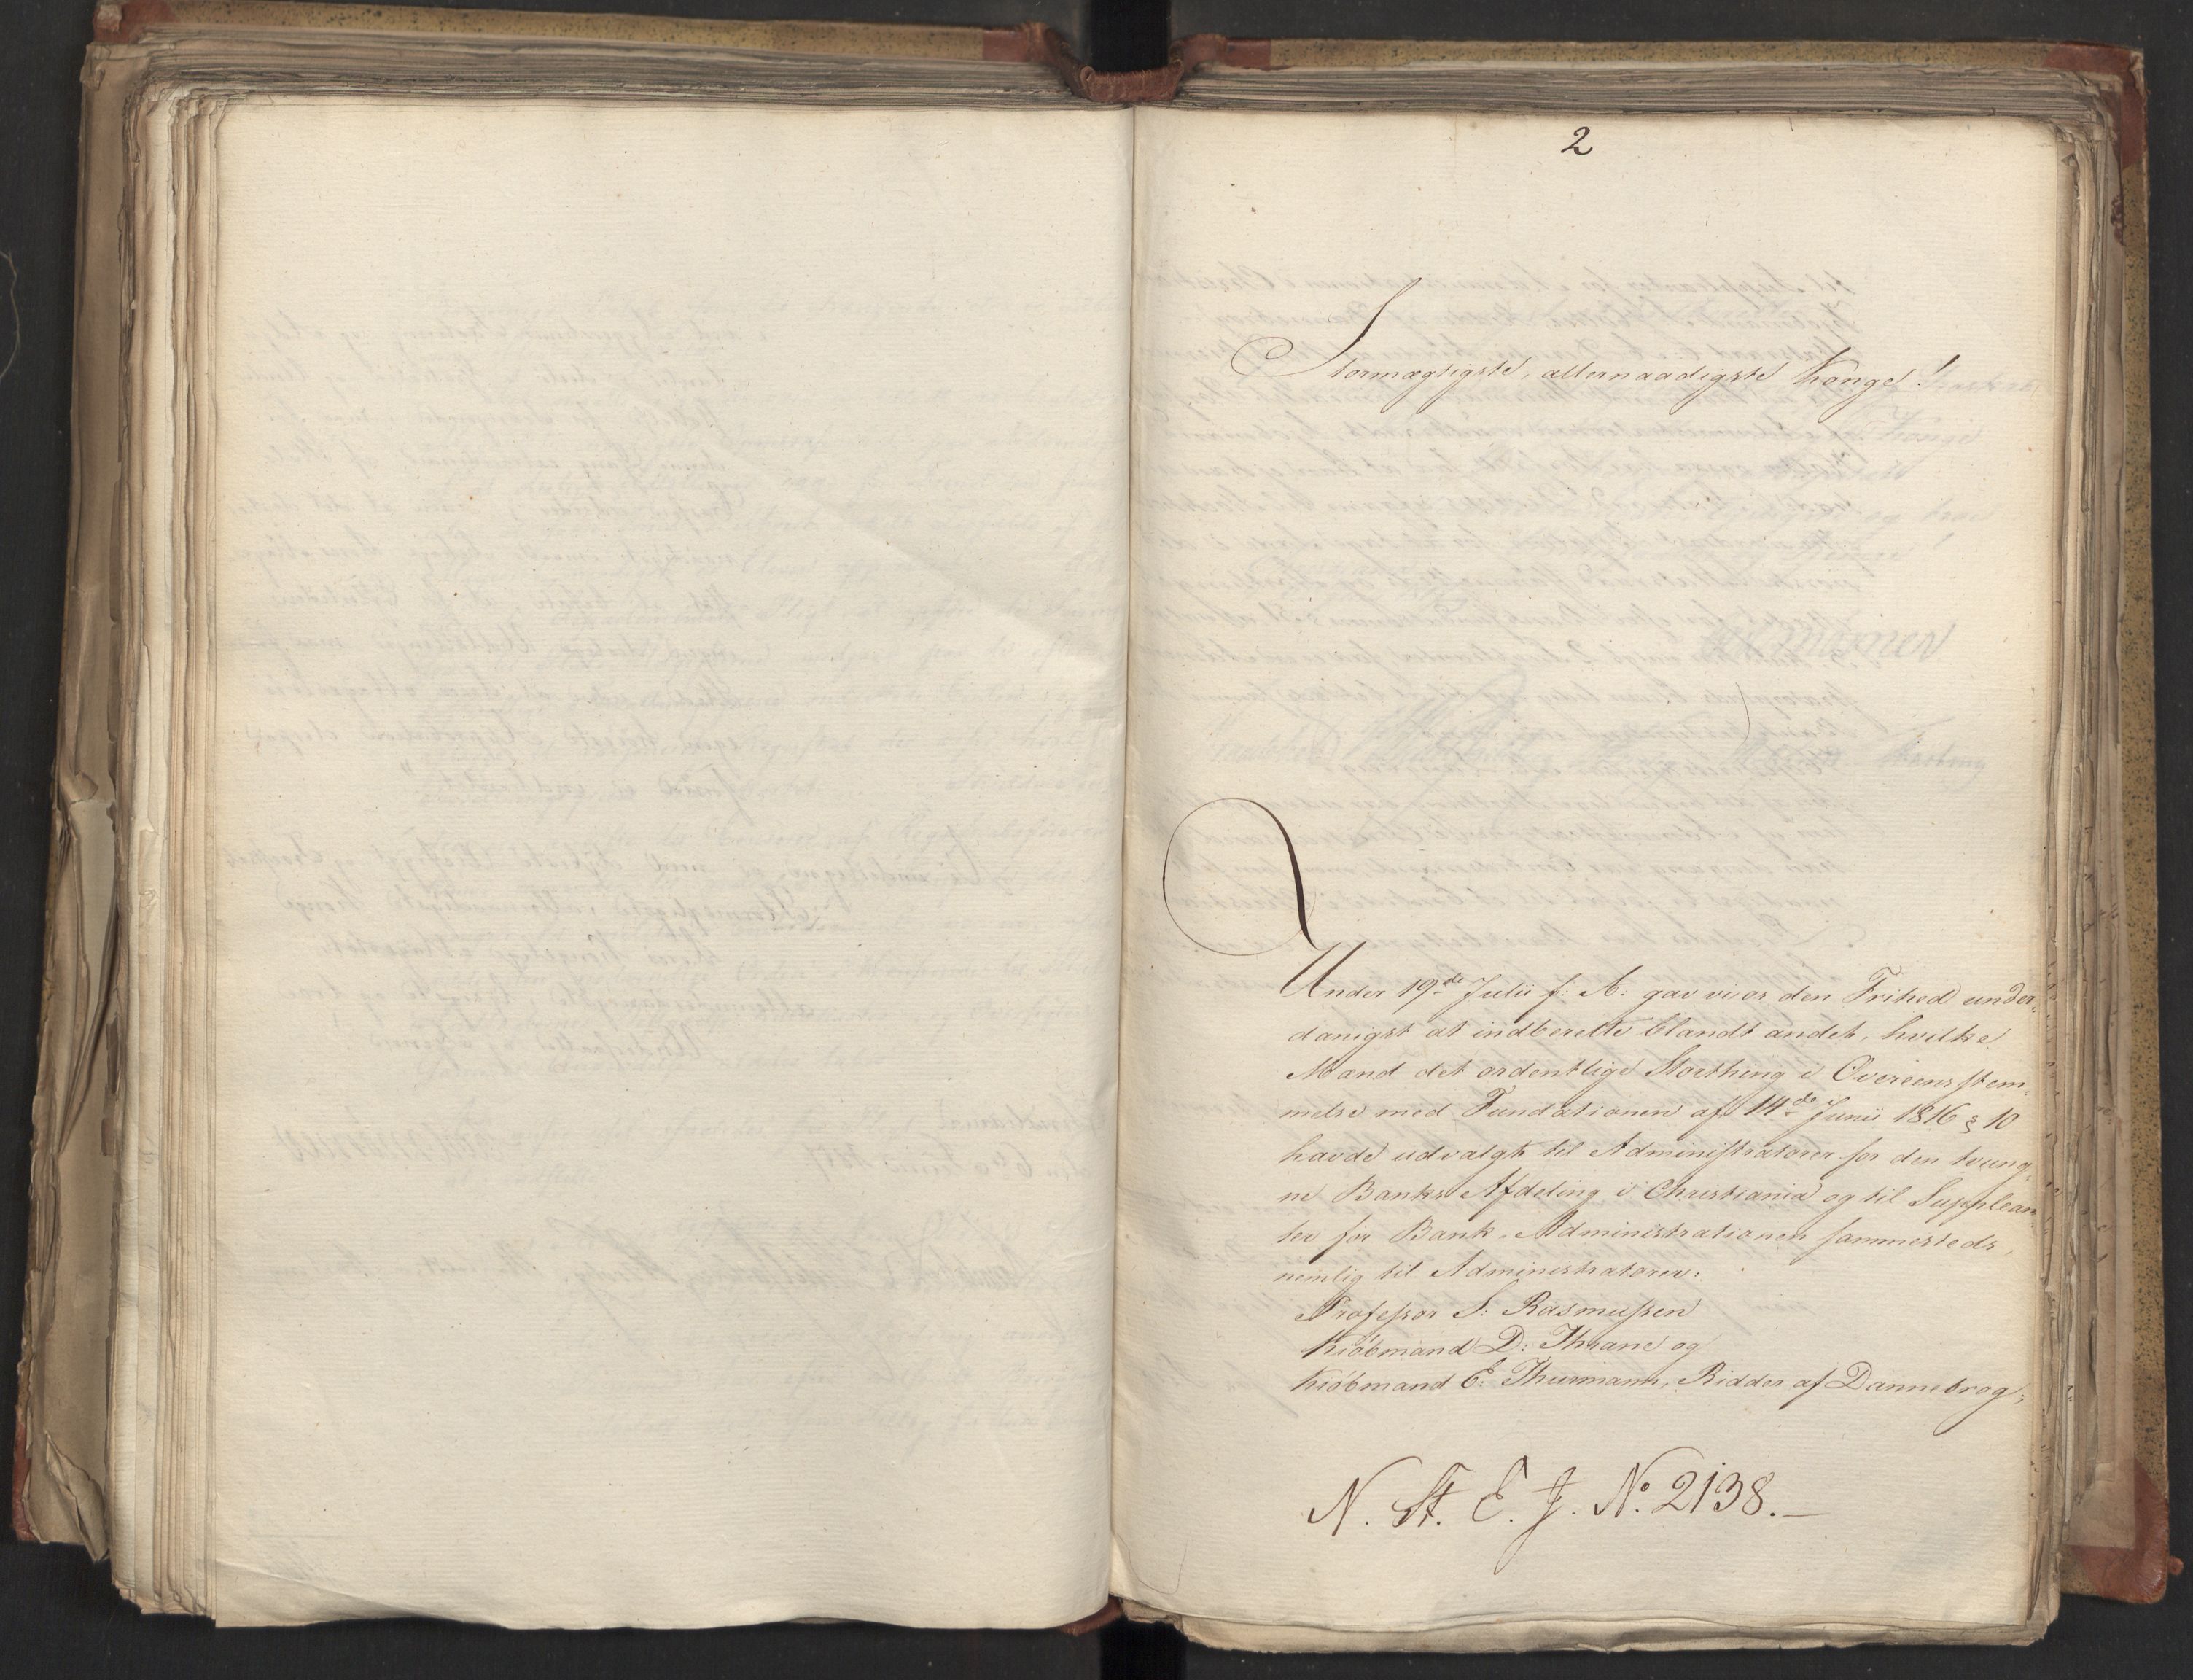 2
Stormægtigste, allernaadigste Konge!
Under 19de Julii f: A: gav vi os den Frihed under-
danigst at indberette blandt andet, hvilke
Mænd det ordentlige Storthing i Overeensstem-
melse med Fundationen af 14de Junii 1816 § 10
havde udvalgt til Administratorer for den tvung-
ne Banks Afdeling i Christiania og til Supplean-
ter for Bank-Administrationen sammesteds,
nemlig til Administratorer:
Professor S: Rasmussen
Kiöbmand D: Thrane og
Kiöbmand E: Thurmann, Ridder af Dannebrog;
N. St. E. J. No. 2138.—